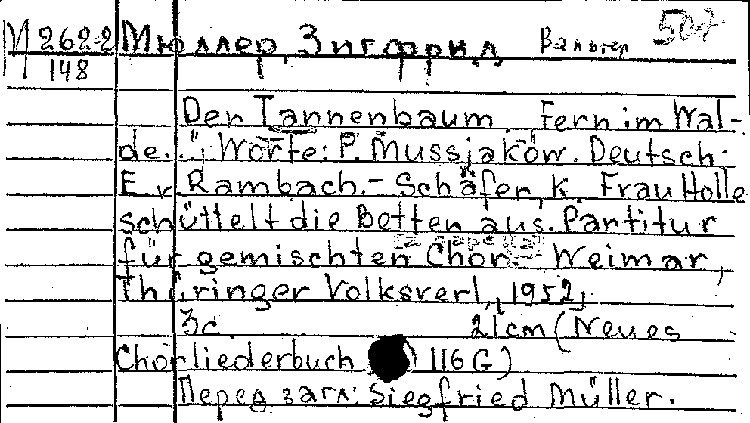 М 262-2 Мюллер, Зигфрид Вальтер 507
148
Der Tannenbaum. "Fern im Wal-
de..."; Worte: P. Mussjakow. Deutsch:
E. v. Rambach.- Schäfer, K. Frau Holle
schüttelt die Betten aus. Partitur
für gemischten Chor a cappella.- Weimar,
Thüringer Volksverl., [1952].
3 с. 21 cm (Neues
Chorliederbuch 116 G)
Перед загл: Siegfried Müller.